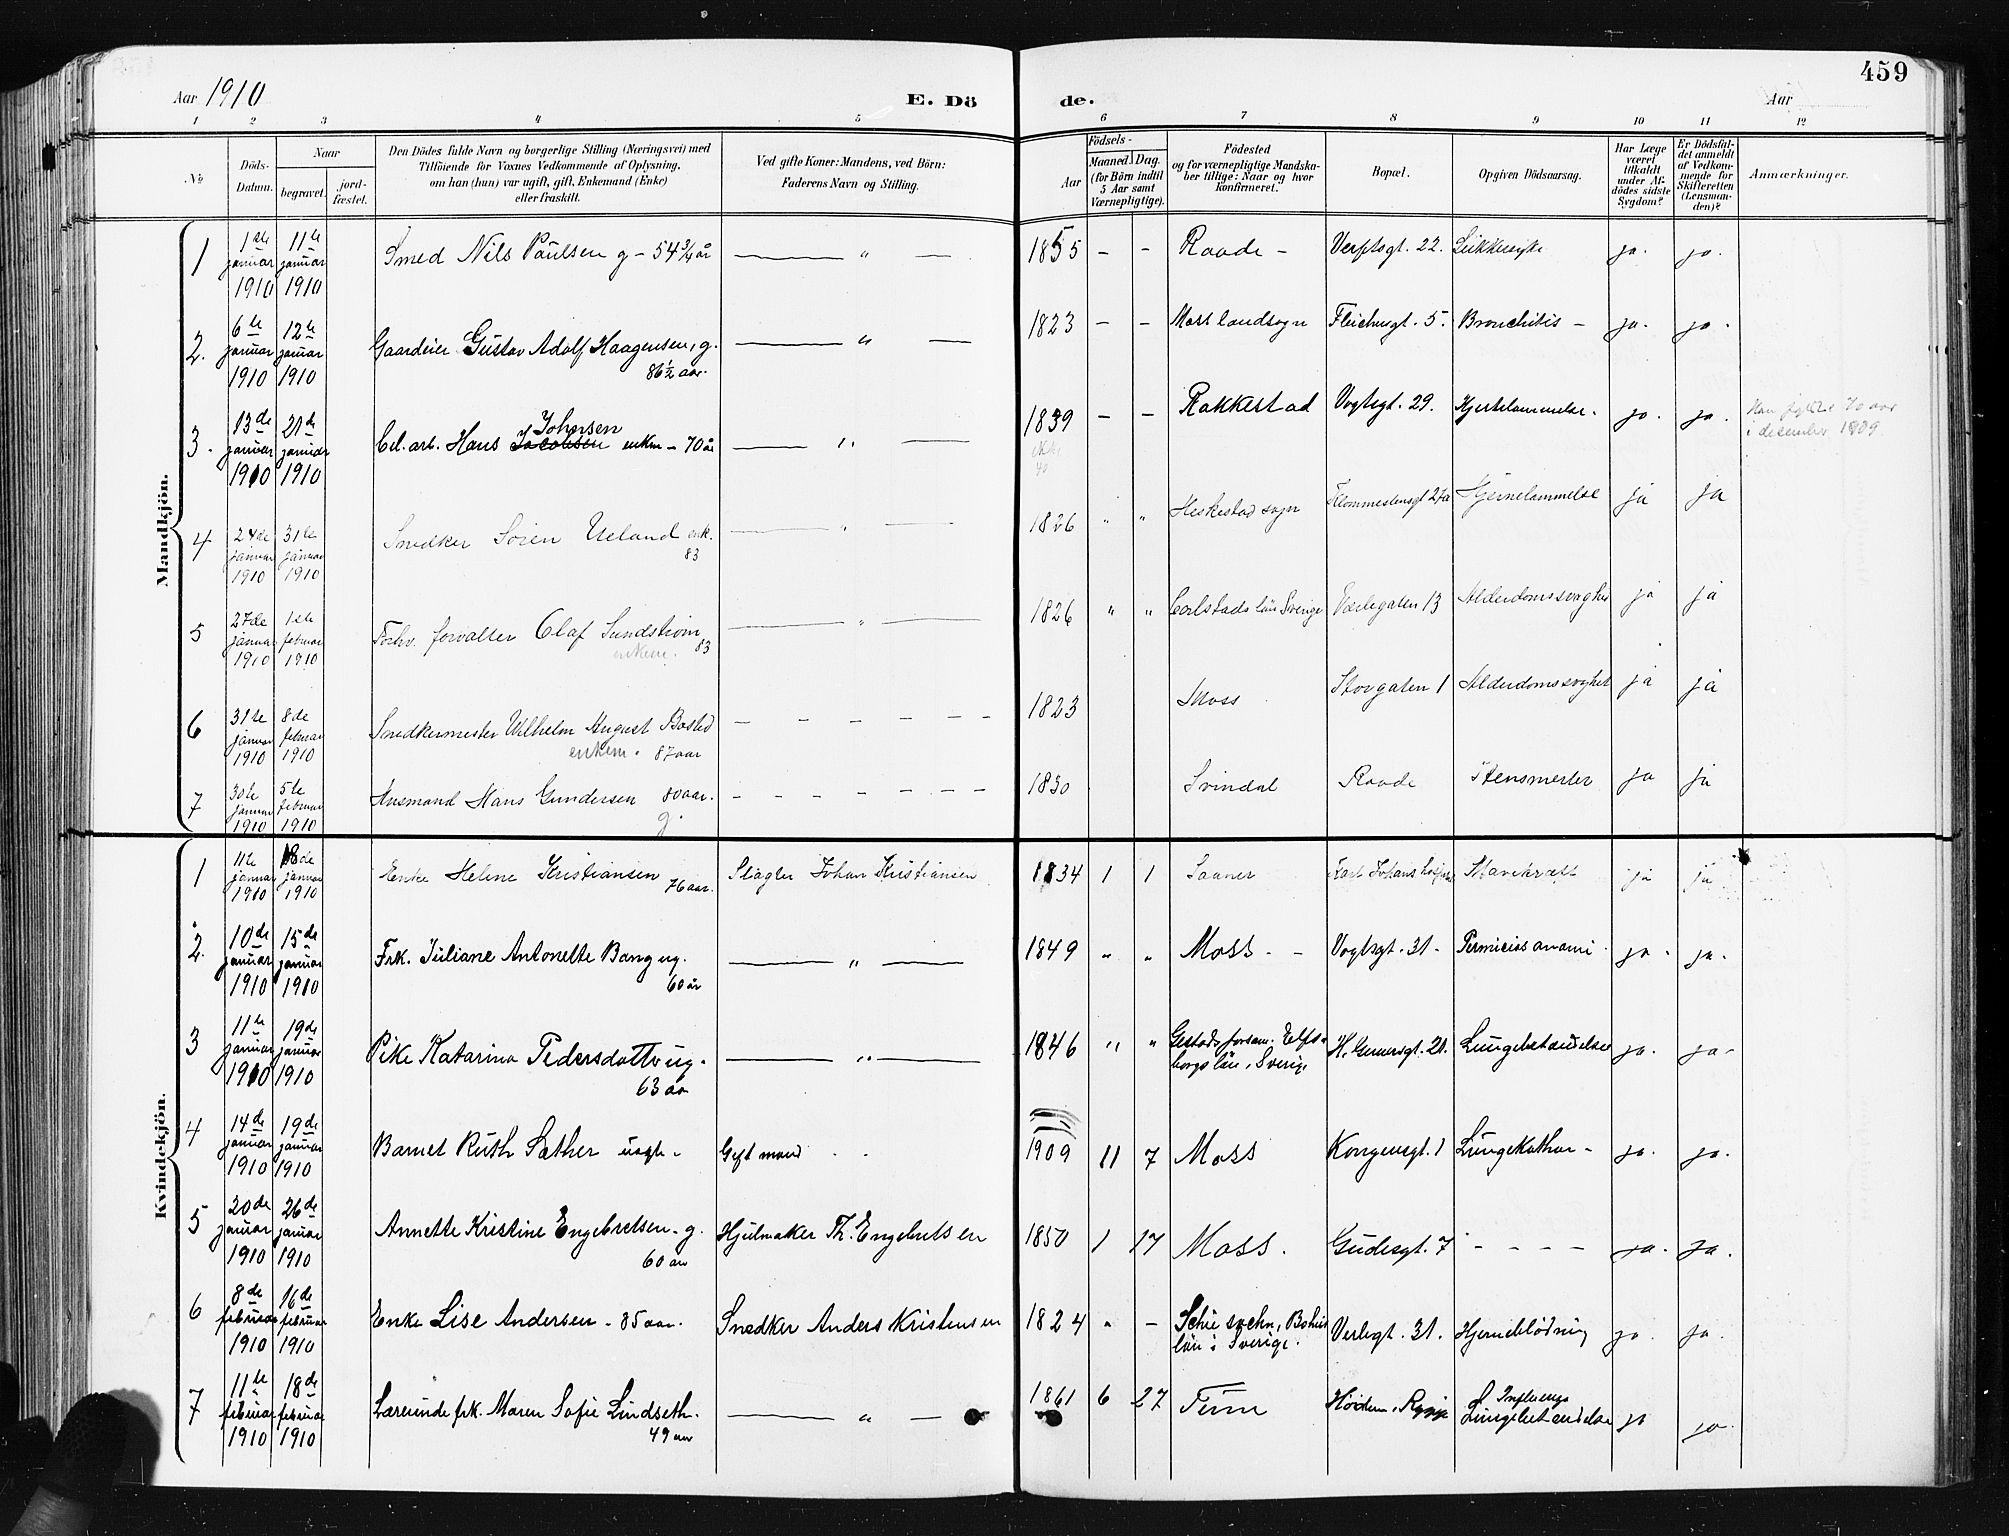 459
Aar 1910
E. Dö
de.
Aar
1 2 3 4 5 6 7 8 9 10 11 12
No
Döds-Datum.
Naar
begravet.
jord-fæstet.
Den Dödes fulde Navn og borgerlige Stilling (Næringsvei) med
Tilföiende for Voxnes Vedkommende af Oplysning,
om han (hun) var ugift, gift, Enkemand (Enke)
eller fraskilt.
Ved gifte Koner: Mandens, ved Börn:
Faderens Navn og Stilling.
Födsels-
Aar
Maaned. Dag.
(for Börn indtil
5 Aar samt
Værnepligtige).
Födested
og for værnepligtige Mandska-
ber tillige: Naar og hvor
konfirmeret.
Bopæl.
Opgiven Dödsaarsag.
Har Læge
været
tilkaldt
under Af-
dödes sidste
Sygdom?
Er Dödsfal-
det anmeldt
af Vedkom-
mende for
Skifteretten
(Lensman-
den)?
Anmærkninger.
Mandkjön.
1 1ste januar 1910 11te januar 1910 Smed Nils Paulsen g - 54 3/4 år — " — 1855 - - Raade - Verftsgt. 22. ja. ja.
2. 6te januar 1910 12te januar 1910 Gaardeier Gustav Adolf Haagensen, g. 86½ aar. — " — 1823 - - Moss landsogn 5. Bronchitis - ja. ja.
3. 13de januar 1910 21de januar 1910 arb. Hans Jacobsen Johnsen enkm - 70 år — " — 1839 - - Rakkestad Vogtsgt. 29. Hjertelammelse. ja. ja. Han fyldte 70 aar
i desember 1909.
4 24de januar 1910 31te januar 1910 Snedker Sören Ueland enk. 83 — " — 1826 " " Heskestad sogn Hjernelammelse ja ja
5 27de januar 1910 1ste februar 1910 Forhv. forvalter Olaf Sundström enkem. 83 — " — 1826 " " Carlstads län Sverige Værlegaten 13 Alderdomssvaghet ja ja
6 31te januar 1910 8de februar 1910 Snedkermester Wilhelm August enkem. 87 aar — — — 1823 Moss Storgaten 1 Alderdomssvaghet ja ja
7 30te januar 1910 5te februar 1910 Husmand Hans Gundersen 80 aar. g. — — — 1830 Svindal Raade ja ja
Kvindekjön.
1 11te januar 1910 18de januar 1910 Enke Helene Kristiansen 76 aar. Slagter Johan Kristiansen 1834 1 1 Saaner Mavekræft ja ja
2. 10de januar 1910 15de januar 1910 Frk. Juliane Antonette Bang ug. 60 år — " — 1849 " " Moss - - Vogtsgt. 31 - Perniciøs anæmi ja. ja.
3 11te januar 1910 19de januar 1910 Pike Katarina Pedersdatter ug. 63 aar — " — 1846 " " Gestads forsam. Elfs-
borgs län, Sverige H. Gernersgt. 21. Lungebetændelse ja. ja -
4 14de januar 1910 19de januar 1910 Barnet Ruth Sæther uægte - Gift mand . . 1909 11 7 Moss Kongensgt. 1 Lungekathar - ja. ja.
5 20de januar 1910 26de januar 1910 Annette Kristine Engebretsen - g. 60 aar Hjulmaker Th. Engebretsen 1850 1 17 Moss. Gudesgt. 7 - - - - ja. ja.
6 8de februar 1910 16de februar 1910 Enke Lise Andersen - 85 aar. Snedker Anders Kristensen 1824 " - sochn, Bohus
län i Sverige. Verlegt. 31. Hjerneblødning ja. ja.
7 11te februar 1910 18de februar 1910 Lærerinde frk. Maren Sofie Lindseth. 49 aar — " — 1861 6 27 Tune Influenza
Lungebetændelse ja ja.